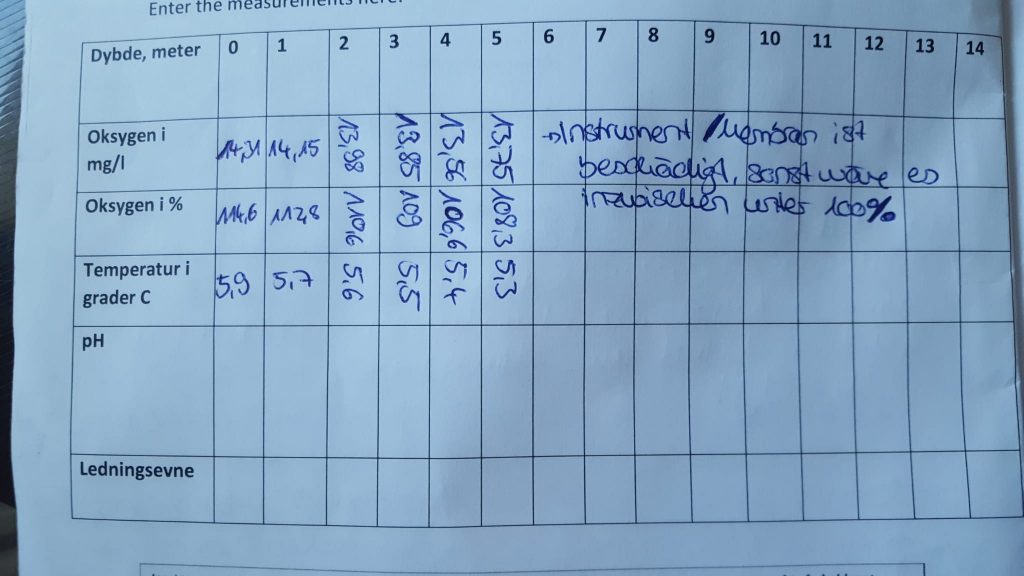 Enter the measurements here:
Dybde, meter 0 1 2 3 4 5 6 7 8 9 10 11 12 13 14
Oksygen i mg/l 14,31 14,15 13,98 13,85 13,56 13,75 →Instrument /Membran ist
beschädigt, sonst wäre es
Oksygen i % 114,6 112,8 110,6 109 106,6 108,3 inzwischen unter 100%
Temperatur i grader C 5,9 5,7 5,6 5,5 5,4 5,3
pH
Ledningsevne